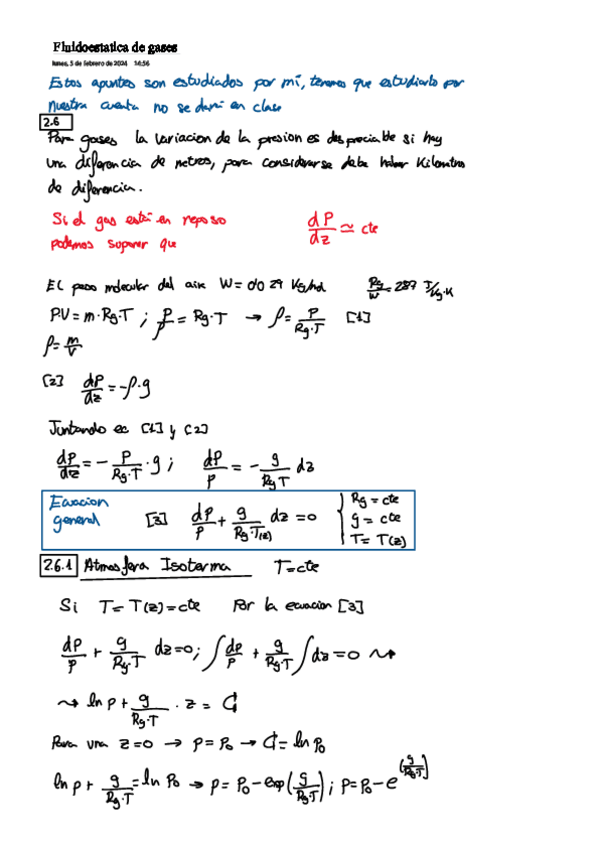 Fluidoestatica de gases
lunes, 5 de febrero de 2024 14:56
Estos apuntes son estudiados por mí, tenemos que estudiarlo por
nuestra cuenta no se dará en clase
2.6
Para gases la variacion de la presion es despreciable si hay
una diferencia de metros, para considerarse debe haber Kilometros
de diferencia.
Si el gas está en reposo
podemos suponer que
dP/dz ≃ cte
El peso molecular del aire W = 0'029 Kg/mol Rg/W = 287 J/Kg·K
P.V = m·Rg·T ; P/ρ = Rg·T → ρ = P/Rg·T [1]
ρ = m/V
[2] dP/dz = -ρ·g
Juntando ec [1] y [2]
dP/dz = - P/Rg·T · g ; dP/P = - g/Rg T dz
Ecuacion
general
[3] dP/P + g/Rg·T(z) dz = 0 { Rg = cte
g = cte
T = T(z)
2.6.1 Atmosfera Isoterma T = cte
Si T = T(z) = cte Por la ecuacion [3]
dP/P + g/Rg·T dz = 0 ; ∫dP/P + g/Rg·T ∫dz = 0 ⇝
⇝ ln p + g/Rg·T · z = C1
Para una z = 0 → P = P0 → C1 = ln P0
ln p + g/Rg·T = ln P0 → P = P0 - exp(g/Rg·T) ; P = P0 - e^(g/Rg·T)